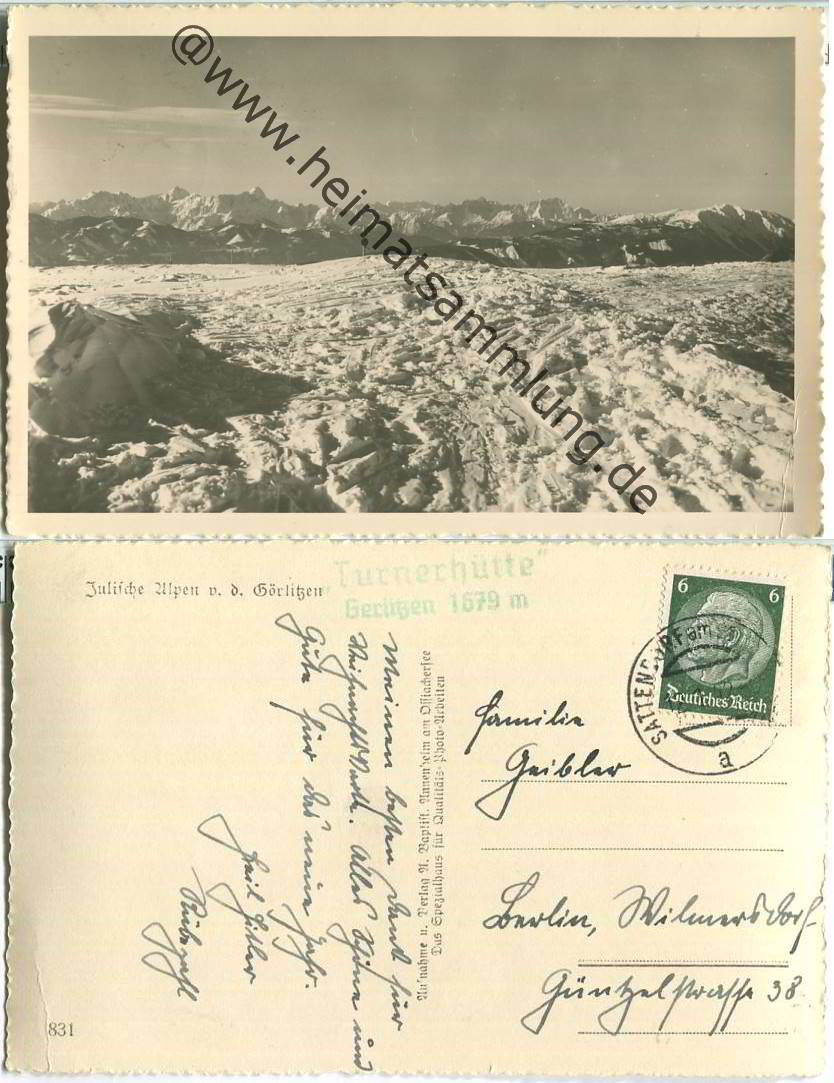 @www.heimatsammlung.de
Julische Alpen v. d. Görlitzen
"Turnerhütte"
Gerlitzen 1679 m
6 6
Deutsches Reich
SATTENDORF am
a
Meinen besten Dank für
Weihnachtskarte. Alles Schöne und
Gute für das neue Jahr.
Heil Hitler
Aufnahme u. Verlag A. Baptist, Annenheim am Ossiachersee
Das Spezialhaus für Qualitäts-Photo-Arbeiten
Familie
Geibler
Berlin, Wilmersdorf
Güntzelstrasse 38
831